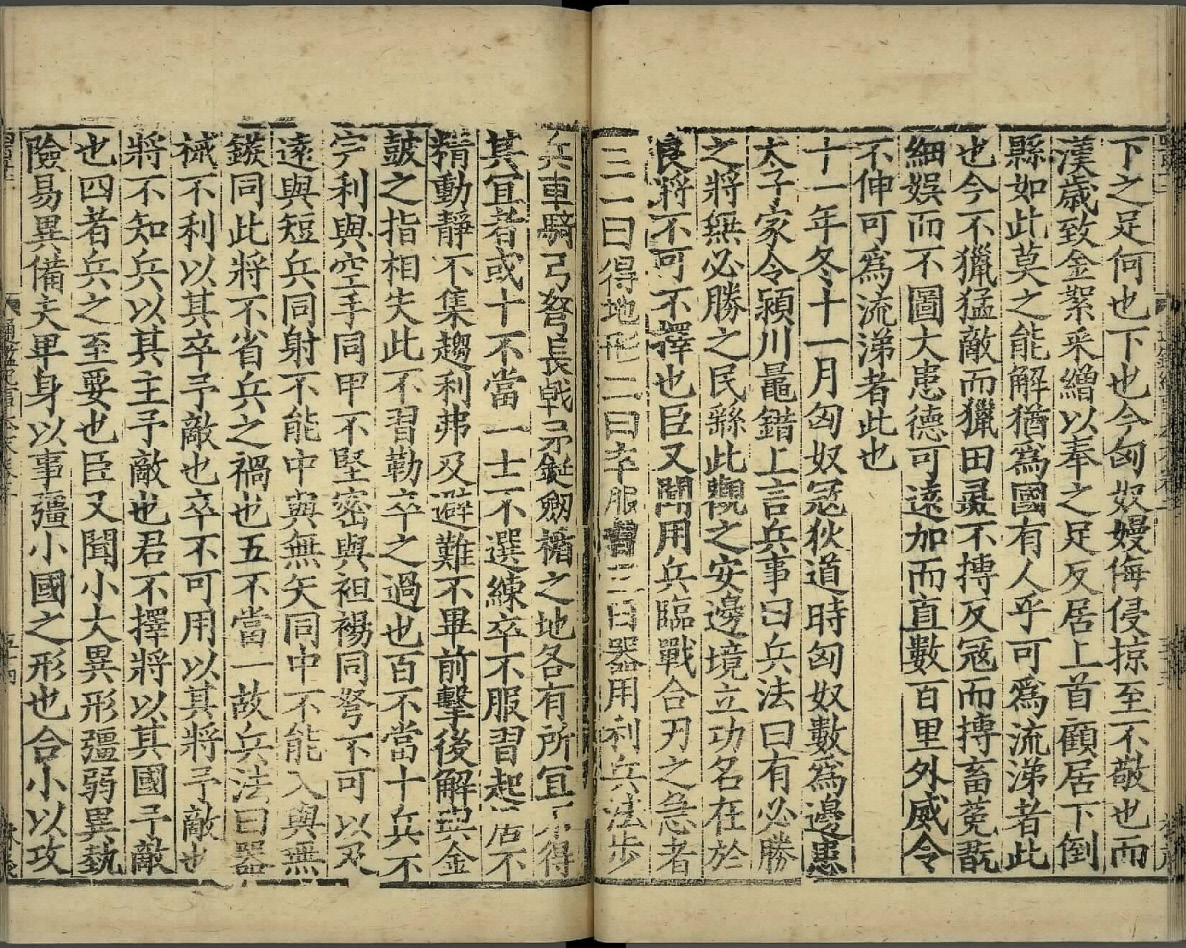 下之足何也下也今匈奴嫚侮侵掠至不敬也而
漢歲致金絮采繒以奉之足反居上首顧居下倒
縣如此莫之能解猶爲國有人乎可爲流涕者此
也今不獵猛敵而獵田彘不搏反冦而搏畜菟翫
細娱而不圖大患德可遠加而直數百里外威令
不伸可爲流涕者此也
十一年冬十一月匈奴冦狄道時匈奴數爲邊患
太子家令潁川鼂錯上言兵事曰兵法曰有必勝
之將無必勝之民繇此觀之安邊境立功名在於
良將不可不擇也臣又聞用兵臨戰合刃之急者
三一曰得地形二曰卒服習三曰器用利兵法歩
兵車騎弓弩長戟矛鋋劔楯之地各有所宜不得
其宜者或十不當一士不選練卒不服習起居不
精動靜不集趨利弗及避難不畢前擊後解與金
鼓之指相失此不習勒卒之過也百不當十兵不
完利與空手同甲不堅密與袒裼同弩不可以及
遠與短兵同射不能中與無矢同中不能入與無
鏃同此將不省兵之禍也五不當一故兵法曰器
械不利以其卒予敵也卒不可用以其將予敵也
將不知兵以其主予敵也君不擇將以其國予敵
也四者兵之至要也臣又聞小大異形彊弱異埶
險易異備夫卑身以事彊小國之形也合小以攻